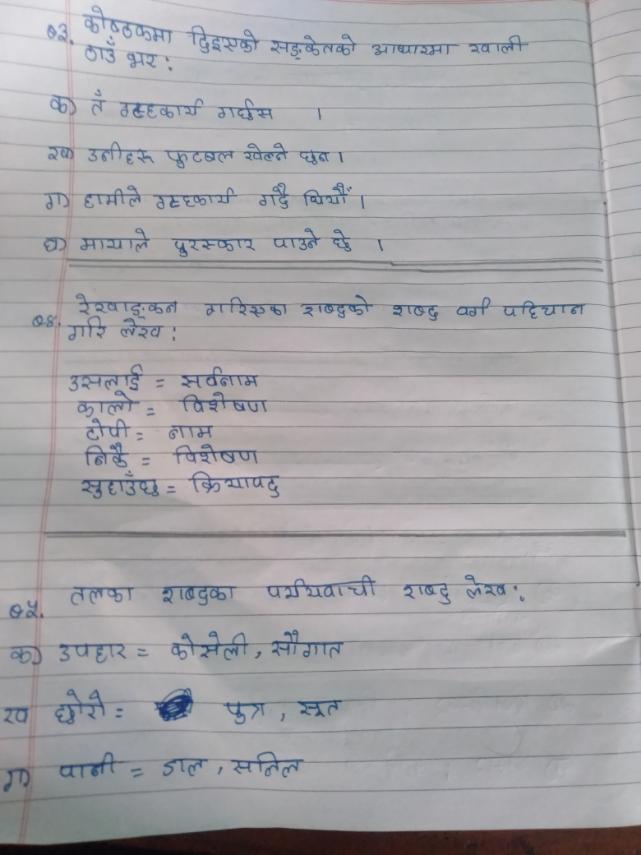 ७३. कोष्ठकमा दिइएको सङ्केतको आधारमा खाली
ठाउँ भर :
क) तँ गृहकार्य गर्छस ।
ख) उनीहरू फुटबल खेल्ने छन ।
ग) हामीले गृहकार्य गर्दै थियौँ ।
घ) मायाले पुरस्कार पाउने छे ।
७४. रेखाङ्कन गरिएका शब्दको शब्द वर्ग पहिचान
गरि लेख :
उसलाई = सर्वनाम
कालो = विशेषण
टोपी = नाम
निकै = विशेषण
सुहाउँछ = क्रियापद
७५. तलका शब्दका पर्यायवाची शब्द लेख :
क) उपहार = कोसेली, सौगात
ख छोरो = पुत्र, सूत
ग) पानी = जल, सलिल